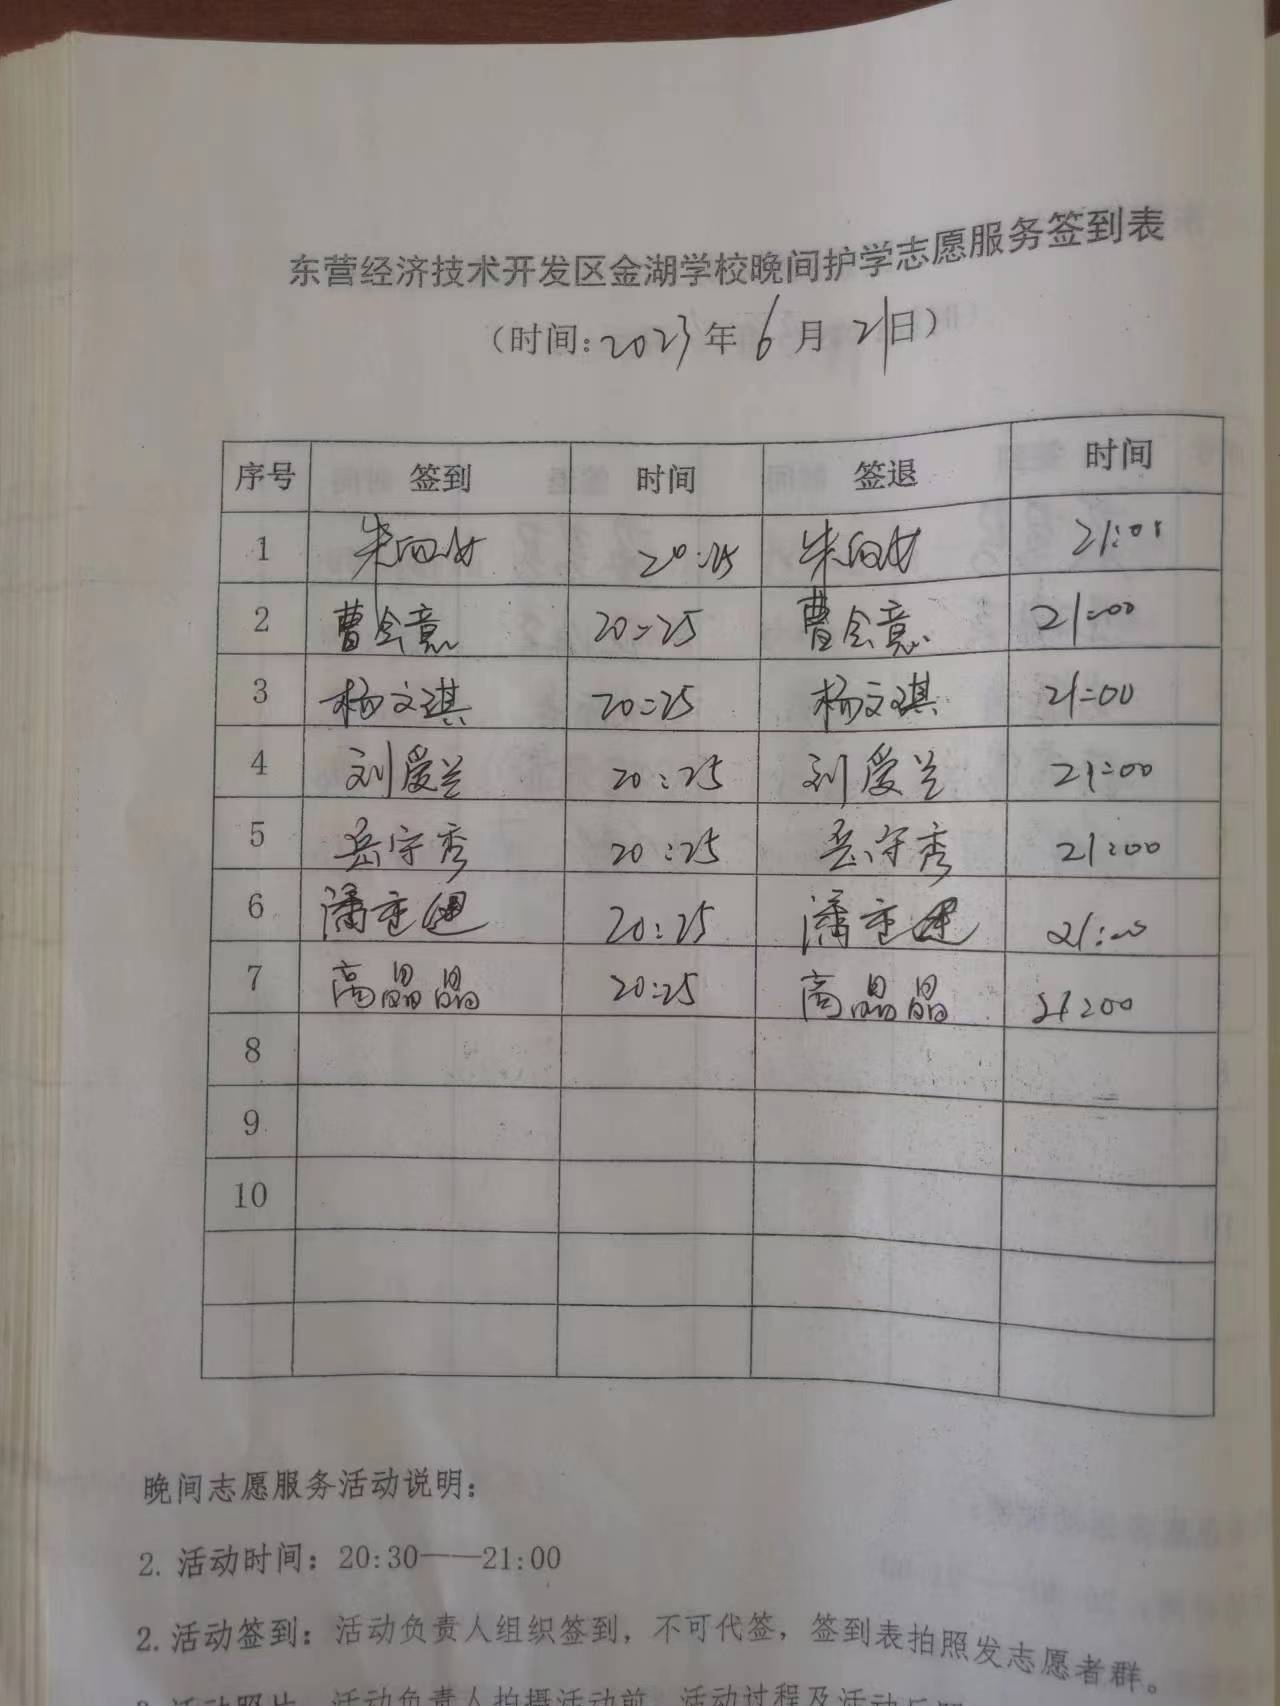 东营经济技术开发区金湖学校晚间护学志愿服务签到表
（时间：2023年6月21日）
序号 签到 时间 签退 时间
1 朱 20:25 朱 21:01
2 曹会意 20:25 曹会意 21:00
3 杨文琪 20:25 杨文琪 21:00
4 刘爱兰 20:25 刘爱兰 21:00
5 岳守秀 20:25 岳守秀 21:00
6 潘重建 20:25 潘重建 21:00
7 高晶晶 20:25 高晶晶 21:00
8
9
10
晚间志愿服务活动说明：
2. 活动时间：20:30——21:00
2. 活动签到：活动负责人组织签到，不可代签，签到表拍照发志愿者群。
活动照片 活动负责人拍摄活动前、活动过程及活动后